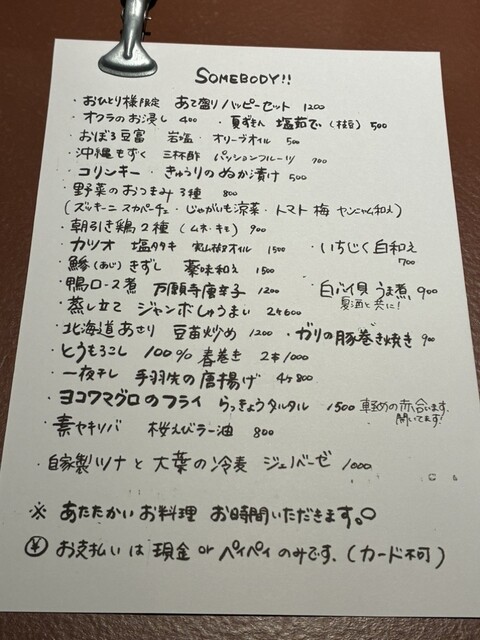 SOMEBODY!!
・おひとり様限定 あて盛りハッピーセット 1200
・オクラのお浸し 400 ・夏ずもん 塩茹で (枝豆) 500
・おぼろ豆富 岩塩・オリーブオイル 500
・沖縄もずく 三杯酢 パッションフルーツ 700
・コリンキー・きゅうりのぬか漬け 500
・野菜のおつまみ3種 800
(ズッキーニ スカペーチェ・じゃがいも涼菜・トマト 梅 ヤンニャム和え)
・朝引き鶏2種 (ムネ・キモ) 900
・カツオ 塩タタキ 実山椒オイル 1500 ・いちじく白和え 700
・鯵(あじ)きずし 薬味和え 1500
・鴨ロース煮 万願寺唐辛子 1200 ・白バイ貝 うま煮 900
夏酒と共に!
・蒸し立て ジャンボしゅうまい 2ケ600
・北海道あさり 豆苗炒め 1200 ・ガリの豚巻き焼き 900
・とうもろこし 100% 春巻き 2本1000
・一夜干し 手羽先の唐揚げ 4ヶ800
・ヨコワマグロのフライ らっきょうタルタル 1500 軽めの赤合います。開いてます!
・素ヤキソバ 桜えびラー油 800
・自家製ツナと大葉の冷麦 ジェノベーゼ 1000
※ あたたかいお料理 お時間いただきます。
¥ お支払いは現金orペイペイのみです。(カード不可)